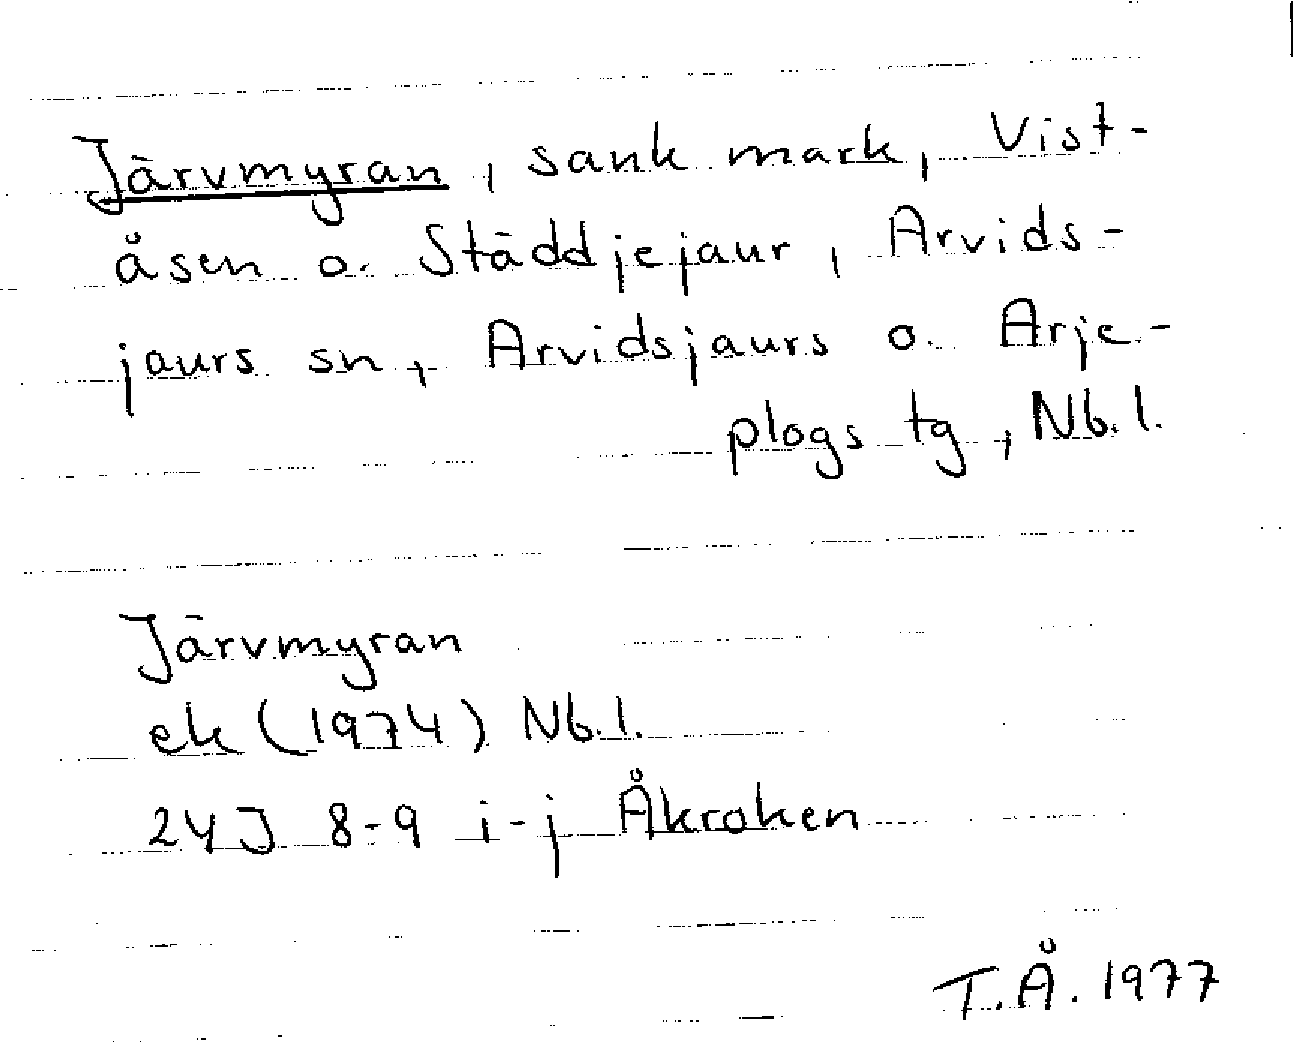 Järvmyran, sank mark, Vist-
åsen o. Städdjejaur, Arvids-
jaurs sn, Arvidsjaurs o. Arje-
plogs tg, Nb.l.
Järvmyran
ek (1974) Nb.l.
24J 8-9 i-j Åkroken
T.Å. 1977